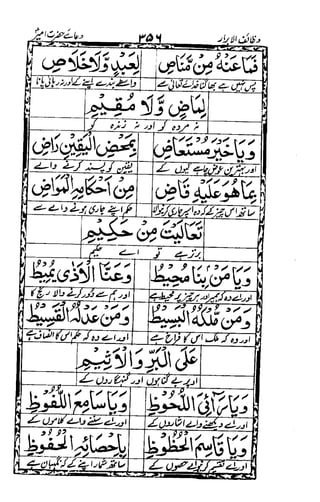 وظائف الابرار ۳۵۶ دعائے حضرت امیرؑ
فَمَا عَنْهُ مِنْ مَّنَاصٍ لِعَبْدٍ وَّلَا خَلَاصٍ
پس نہیں ہے بھاگنا خدائے تعالیٰ سے واسطے بندے اپنے کے اور نہ رہائی پانا
لِمَاضٍ وَّلَا مُقِيْمٍ
نہ مردہ کو اور نہ زندہ کو
وَيَا خَيْرَ مُسْتَعَاضٍ بِمَحْضِ الْيَقِيْنِ رَاضٍ
اور بہترین عوض چاہے گیوں کے یقین کو پسند کرنے والے
بِمَا هُوَ عَلَيْهِ قَاضٍ مِنْ اَحْكَامِهِ الْمَوَاضِ
ساتھ اس چیز کے کہ وہ امیر جاری کرنیوالا حکم اپنے جاری ہونے والے سے
تَعَالَيْتَ مِنْ حَكِيْمٍ
برتر ہے تو اے حکیم
وَيَا مَنْ بِنَا مُحِيْطٌ وَعَنَّا الْاَذٰى يُمِيْطُ
اور اے وہ کہ ہم پر اور ہر چیز پر محیط ہے اور ہم سے دور کرنے والا رنج کا
وَمَنْ مُلْكُهُ الْبَسِيْطُ وَمَنْ عَدْلُهُ الْقَسِيْطُ
اور وہ کہ ملک اس کا فراخ ہے اور اے وہ کہ حکم اس کا انصاف ہے
عَلَى الْبَرِّ وَالْاَثِيْمِ
اوپر بے گناہوں اور گنہگاروں کے
وَيَا رَائِيَ اللُّحُوْظِ وَيَا سَامِعَ اللُّفُوْظِ
اور اے دیکھنے والے اشاروں کے اور اے سننے والے کلاموں کے
وَيَا قَاسِمَ الْحُظُوْظِ بِاِحْصَائِهِ الْحُفُوْظِ
اور اے تقسیم کرنیوالے حصوں کے ساتھ شمار اپنے کے کہ نگہبان ہے